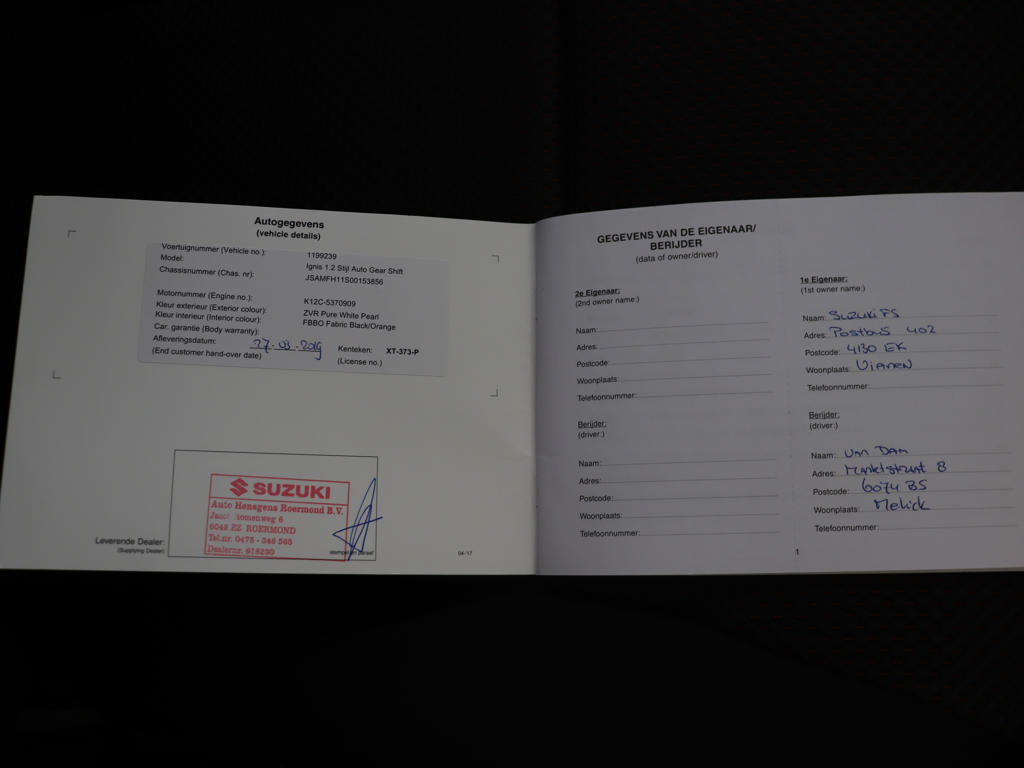 Autogegevens
(vehicle details)
Voertuignummer (Vehicle no.): 1199239
Model: Ignis 1.2 Stijl Auto Gear Shift
Chassisnummer (Chas. nr): JSAMFH11S00153856
Motornummer (Engine no.): K12C-5370909
Kleur exterieur (Exterior colour): ZVR Pure White Pearl
Kleur interieur (Interior colour): FBBO Fabric Black/Orange
Car. garantie (Body warranty):
Afleveringsdatum: 27-03-2019 Kenteken: XT-373-P
(End customer hand-over date) (License no.)
SUZUKI
Auto Hensgens Roermond B.V.
6042 EZ ROERMOND
Tel.nr. 0475 - 346 563
Dealernr. 618230
Leverende Dealer:
(Supplying Dealer)
04-'17
GEGEVENS VAN DE EIGENAAR/
BERIJDER
(data of owner/driver)
2e Eigenaar:
(2nd owner name:)
Naam:
Adres:
Postcode:
Woonplaats:
Telefoonnummer:
Berijder:
(driver:)
Naam:
Adres:
Postcode:
Woonplaats:
Telefoonnummer:
1e Eigenaar:
(1st owner name:)
Naam: Suzuki FS
Adres: Postbus 402
Postcode: 4130 EK
Woonplaats: Vianen
Telefoonnummer:
Berijder:
(driver:)
Naam: Van Dam
Adres: 8
Postcode: 6074 BS
Woonplaats: Melick
Telefoonnummer:
1